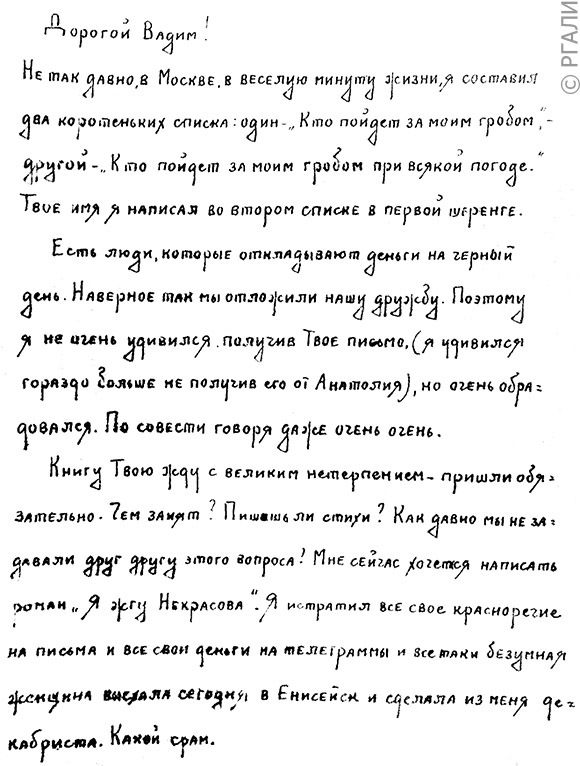 © РГАЛИ
Дорогой Вадим!
Не так давно, в Москве, в веселую минуту жизни, я составил
два коротеньких списка: один - „Кто пойдет за моим гробом“, -
другой - „Кто пойдет за моим гробом при всякой погоде.“
Твое имя я написал во втором списке в первой шеренге.
Есть люди, которые откладывают деньги на черный
день. Наверное так мы отложили нашу дружбу. Поэтому
я не очень удивился, получив Твое письмо, (я удивился
гораздо больше не получив его от Анатолия), но очень обра=
довался. По совести говоря даже очень очень.
Книгу Твою жду с великим нетерпением - пришли обя=
зательно. Чем занят? Пишешь ли стихи? Как давно мы не за=
давали друг другу этого вопроса! Мне сейчас хочется написать
роман „Я жгу Некрасова“. Я истратил все свое красноречие
на письма и все свои деньги на телеграммы и все таки безумная
женщина выехала сегодня в Енисейск и сделала из меня де=
кабриста. Какой срам.